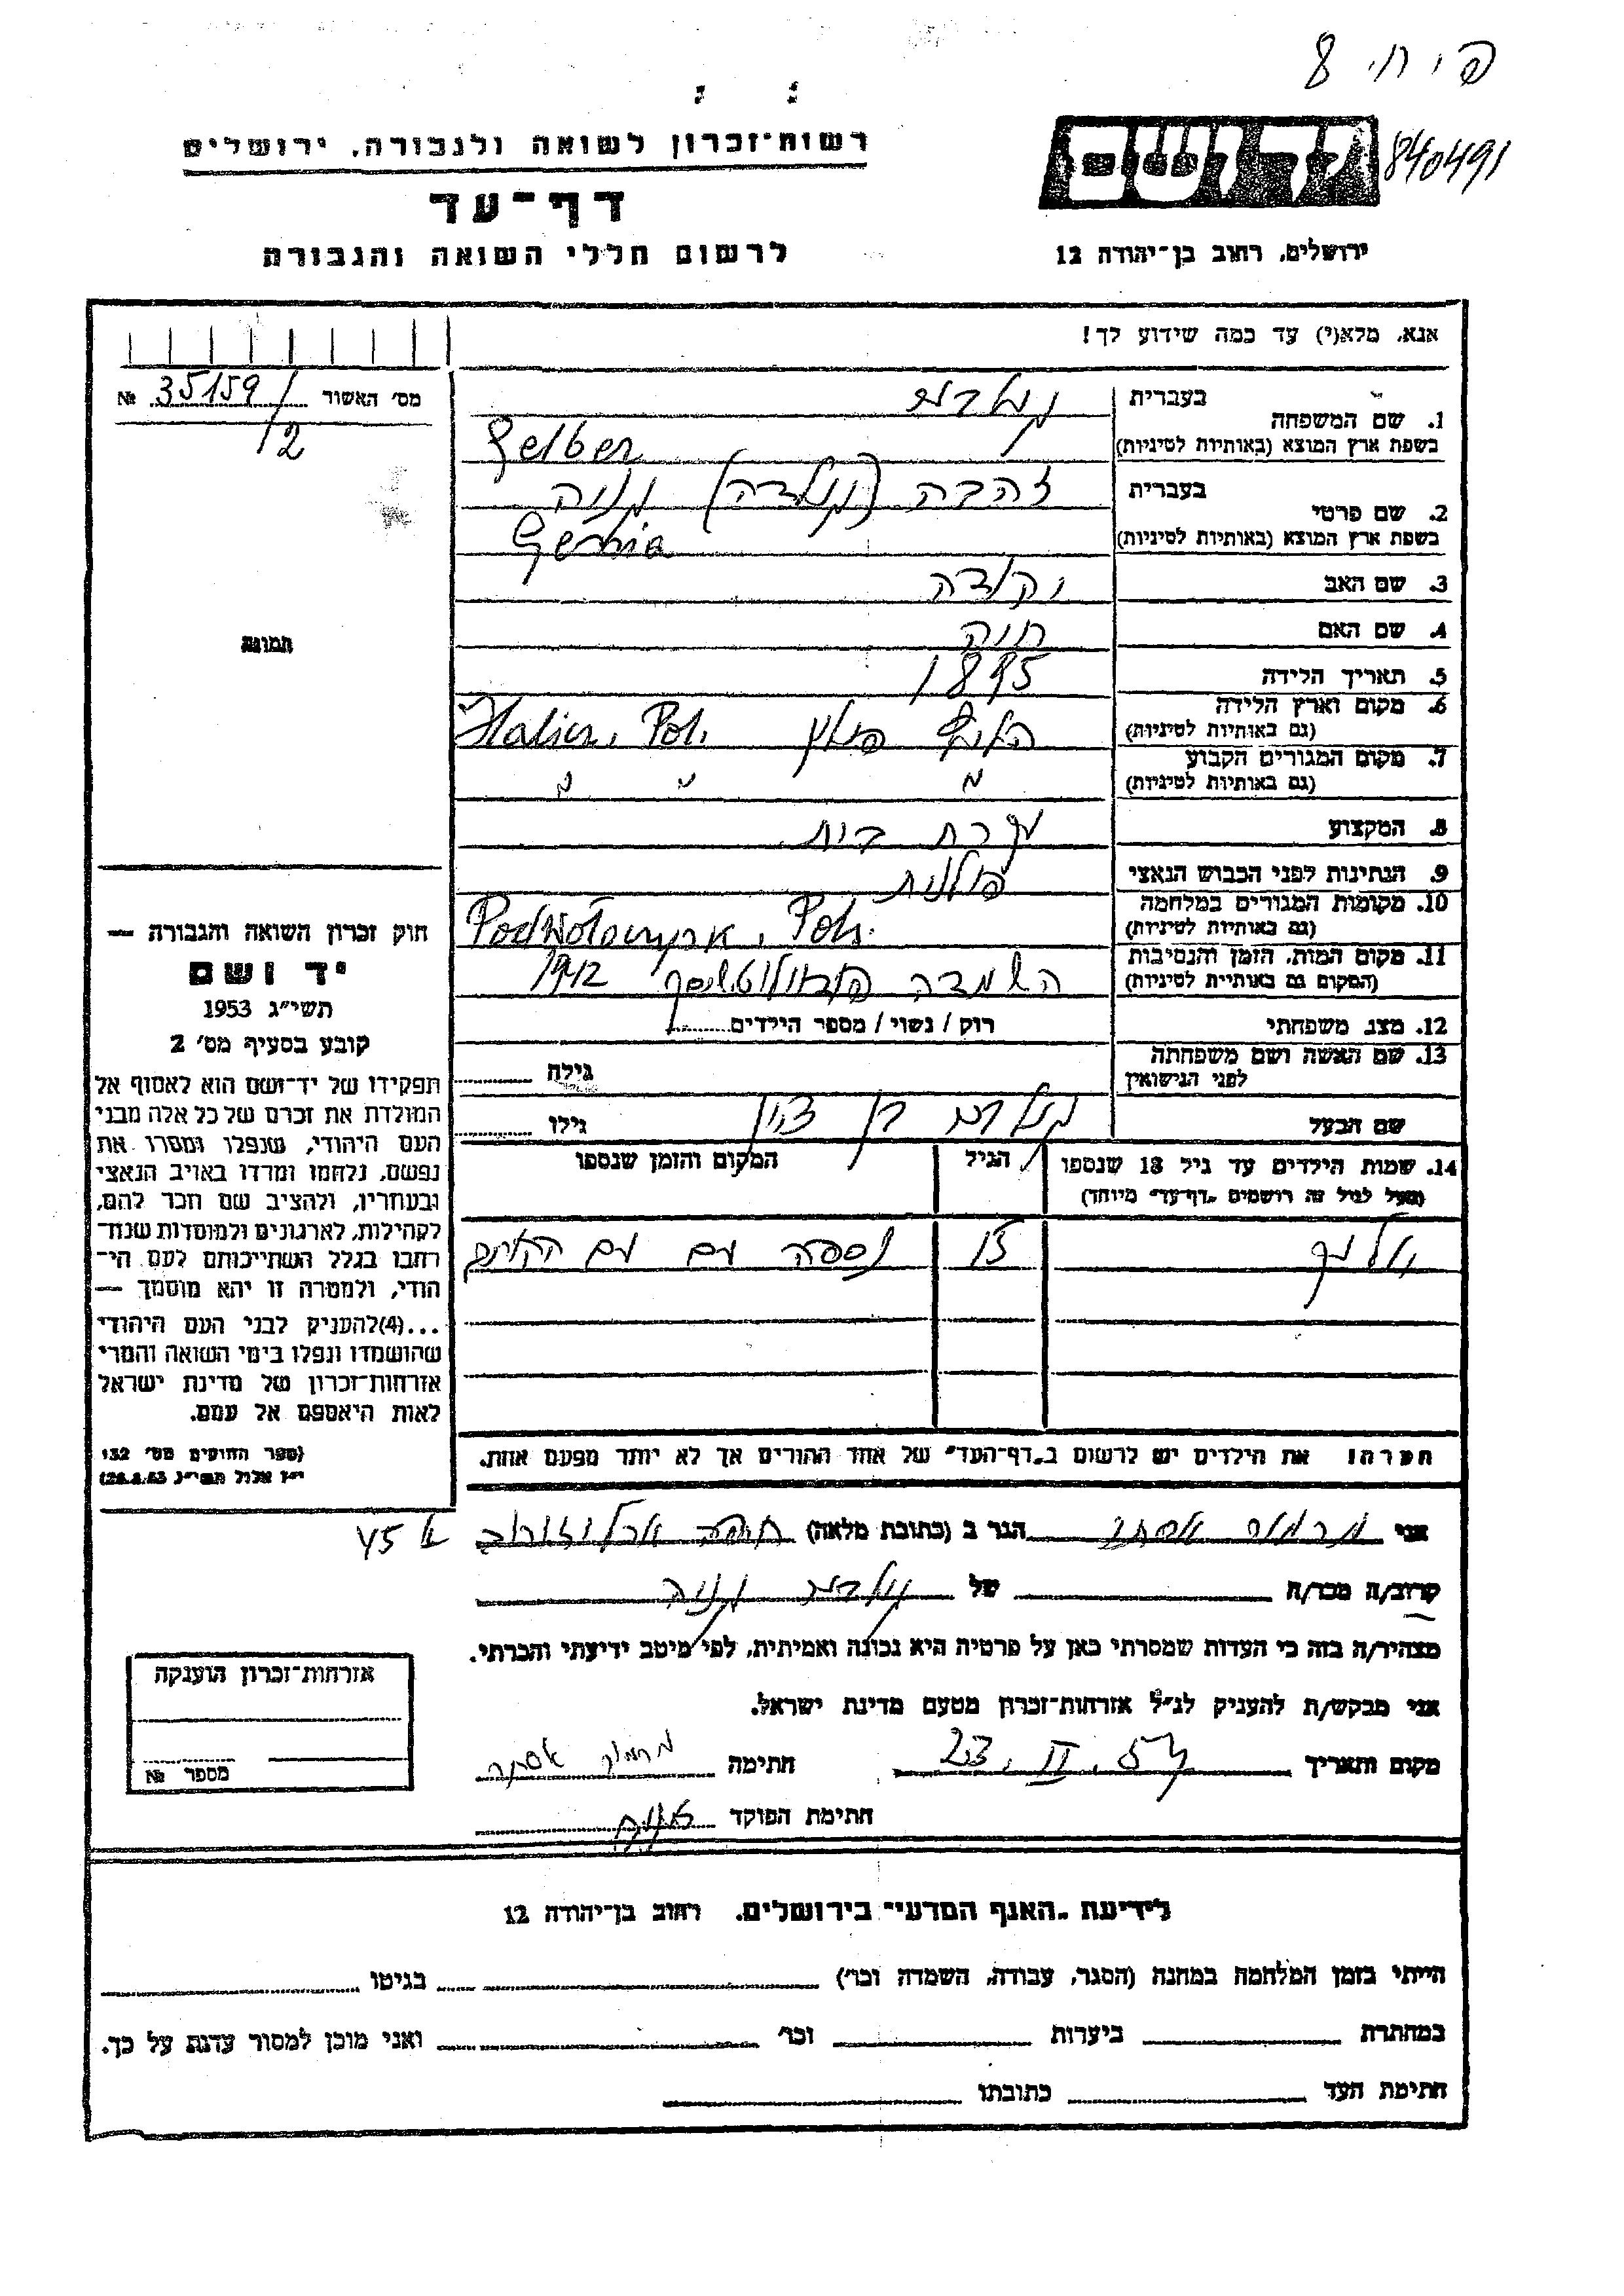 פ י ח 8
840491
רשות־זכרון לשואה ולגבורה, ירושלים
דף־עד
לרשום חללי השואה והגבורה
ירושלים, רחוב בן־יהודה 12
אנא, מלא(י) עד כמה שידוע לך!
מס׳ האשור № 35159/12
1. שם המשפחה בעברית גלבר
בשפת ארץ המוצא (באותיות לטיניות) Gelber
2. שם פרטי בעברית זהבה (גולדה) גניה
בשפת ארץ המוצא (באותיות לטיניות) Genia
3. שם האב
4. שם האם חיה
5. תאריך הלידה 1895
6. מקום וארץ הלידה (גם באותיות לטיניות) פולין Halicz, Pol.
7. מקום המגורים הקבוע (גם באותיות לטיניות) " " "
8. המקצוע עקרת בית
9. הנתינות לפני הכבוש הנאצי פולנית
10. מקומות המגורים במלחמה (גם באותיות לטיניות) Pol.
11. מקום המות, הזמן והנסיבות (המקום גם באותיית לטיניות) השמדה 1942
12. מצב משפחתי רוק / נשוי / מספר הילדים
13. שם האשה ושם משפחתה לפני הנישואין גילה
שם הבעל גלבר בן ציון גילו
14. שמות הילדים עד גיל 18 שנספו הגיל המקום והזמן שנספו
(מעל לגיל זה רושמים „דף־עד״ מיוחד)
נספה עם האם
הערה: את הילדים יש לרשום ב„דף־העד״ של אחד ההורים אך לא יותר מפעם אחת.
תמונה
חוק זכרון השואה והגבורה —
יד ושם
תשי״ג 1953
קובע בסעיף מס׳ 2
תפקידו של יד־ושם הוא לאסוף אל
המולדת את זכרם של כל אלה מבני
העם היהודי, שנפלו ומסרו את
נפשם, נלחמו ומרדו באויב הנאצי
ובעוזריו, ולהציב שם וזכר להם,
לקהילות, לארגונים ולמוסדות שנח־
רבו בגלל השתייכותם לעם הי־
הודי, ולמטרה זו יהא מוסמך —
...(4)להעניק לבני העם היהודי
שהושמדו ונפלו בימי השואה והמרי
אזרחות־זכרון של מדינת ישראל
לאות היאספם אל עמם.
(ספר החוקים מס׳ 132
י״ז אלול תשי״ג, 28.8.53)
אני אסתר הגר ב (כתובת מלאה) חיפה ארלוזורוב 45
קרוב/ה מכר/ה של גלבר גניה
מצהיר/ה בזה כי העדות שמסרתי כאן על פרטיה היא נכונה ואמיתית, לפי מיטב ידיעתי והכרתי.
אני מבקש/ת להעניק לנ״ל אזרחות־זכרון מטעם מדינת ישראל.
מקום ותאריך 23. II. 57 חתימה אסתר
חתימת הפוקד
אזרחות־זכרון הוענקה
מספר №
לידיעת „האגף המדעי״ בירושלים, רחוב בן־יהודה 12
הייתי בזמן המלחמה במחנה (הסגר, עבודה, השמדה וכו׳) בגיטו
במחתרת ביערות וכו׳ ואני מוכן למסור עדות על כך.
חתימת העד כתובתו